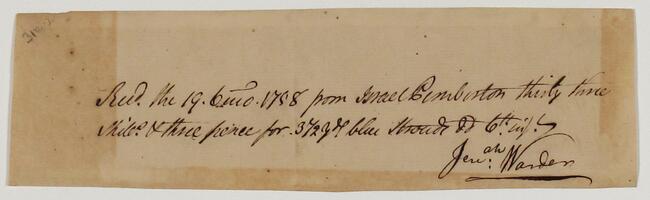 Recd. the 19. 6mo. 1758 from Israel Pemberton thirty three
Shils. & three pence for 3 1/2 yds blue Strouds dd 6th
Jerah. Warder